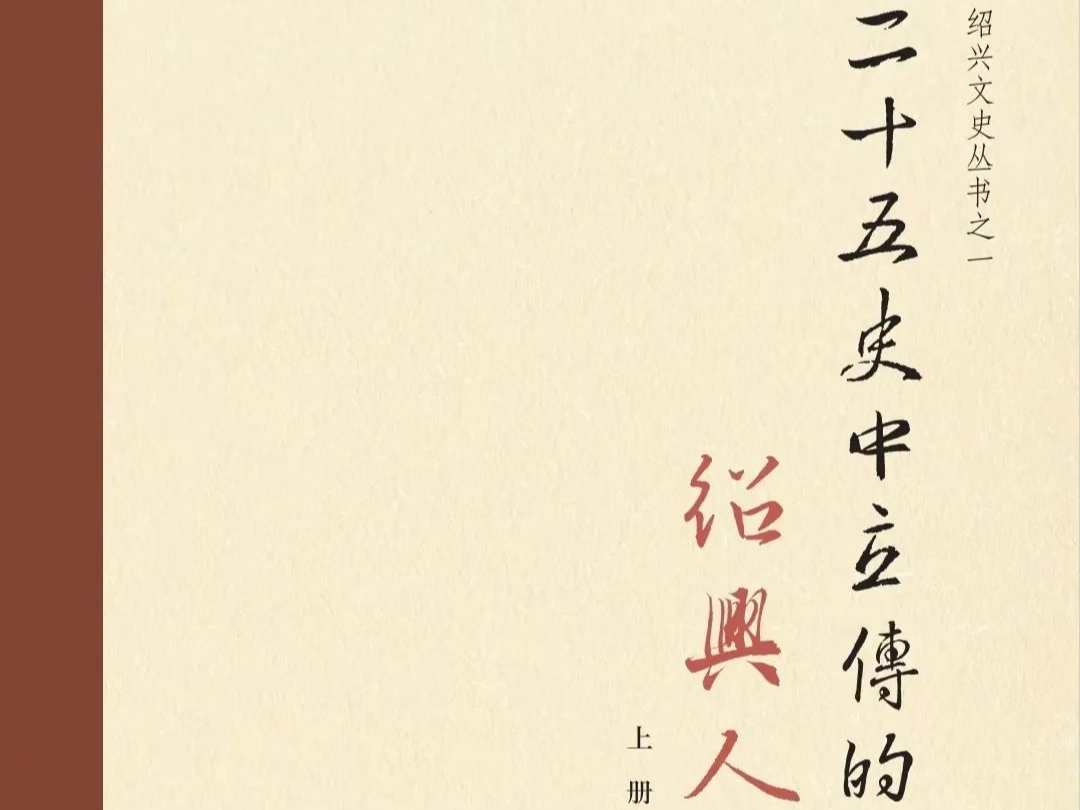 绍兴文史丛书之一
二十五史中立傳的
绍興人
上册